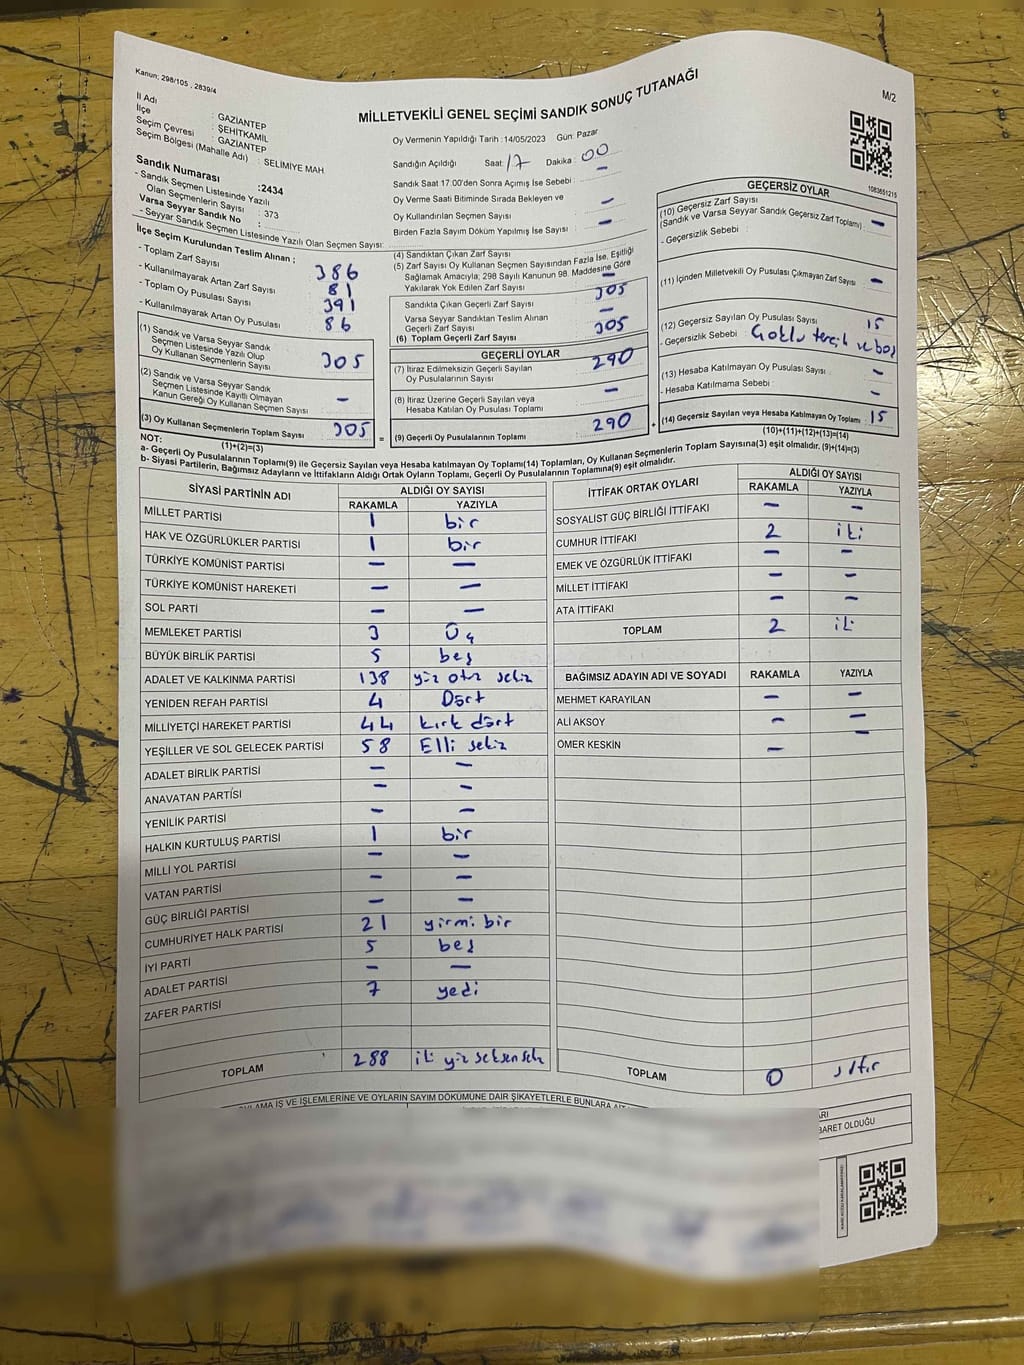 Kanun; 298/105 , 2839/4
MİLLETVEKİLİ GENEL SEÇİMİ SANDIK SONUÇ TUTANAĞI
M/2
İl Adı : GAZİANTEP
İlçe : ŞEHİTKAMİL
Seçim Çevresi : GAZİANTEP
Seçim Bölgesi (Mahalle Adı) : SELİMİYE MAH
Sandık Numarası :2434
- Sandık Seçmen Listesinde Yazılı
Olan Seçmenlerin Sayısı : 373
Varsa Seyyar Sandık No :
- Seyyar Sandık Seçmen Listesinde Yazılı Olan Seçmen Sayısı:
Oy Vermenin Yapıldığı Tarih :14/05/2023 Gün: Pazar
Sandığın Açıldığı Saat: 17 Dakika : 00
Sandık Saat 17.00'den Sonra Açımış İse Sebebi : –
Oy Verme Saati Bitiminde Sırada Bekleyen ve
Oy Kullandırılan Seçmen Sayısı –
Birden Fazla Sayım Döküm Yapılmış İse Sayısı –
İlçe Seçim Kurulundan Teslim Alınan ;
- Toplam Zarf Sayısı 386
- Kullanılmayarak Artan Zarf Sayısı 81
- Toplam Oy Pusulası Sayısı 391
- Kullanılmayarak Artan Oy Pusulası 86
(1) Sandık ve Varsa Seyyar Sandık
Seçmen Listesinde Yazılı Olup
Oy Kullanan Seçmenlerin Sayısı 305
(2) Sandık ve Varsa Seyyar Sandık
Seçmen Listesinde Kayıtlı Olmayan
Kanun Gereği Oy Kullanan Seçmen Sayısı –
(3) Oy Kullanan Seçmenlerin Toplam Sayısı 305 =
(1)+(2)=(3)
(4) Sandıktan Çıkan Zarf Sayısı
(5) Zarf Sayısı Oy Kullanan Seçmen Sayısından Fazla İse, Eşitliği
Sağlamak Amacıyla; 298 Sayılı Kanunun 98. Maddesine Göre
Yakılarak Yok Edilen Zarf Sayısı –
Sandıkta Çıkan Geçerli Zarf Sayısı 305
Varsa Seyyar Sandıktan Teslim Alınan
Geçerli Zarf Sayısı –
(6) Toplam Geçerli Zarf Sayısı 305
GEÇERLİ OYLAR
(7) İtiraz Edilmeksizin Geçerli Sayılan
Oy Pusulalarının Sayısı 290
(8) İtiraz Üzerine Geçerli Sayılan veya
Hesaba Katılan Oy Pusulası Toplamı –
(9) Geçerli Oy Pusulalarının Toplamı 290 +
1083651215
GEÇERSİZ OYLAR
(10) Geçersiz Zarf Sayısı
(Sandık ve Varsa Seyyar Sandık Geçersiz Zarf Toplamı) : –
- Geçersizlik Sebebi :
(11) İçinden Milletvekili Oy Pusulası Çıkmayan Zarf Sayısı –
(12) Geçersiz Sayılan Oy Pusulası Sayısı 15
- Geçersizlik Sebebi : Çoklu tercih ve boş
(13) Hesaba Katılmayan Oy Pusulası Sayısı : –
- Hesaba Katılmama Sebebi : –
(14) Geçersiz Sayılan veya Hesaba Katılmayan Oy Toplamı 15
(10)+(11)+(12)+(13)=(14)
NOT:
a- Geçerli Oy Pusulalarının Toplamı(9) ile Geçersiz Sayılan veya Hesaba katılmayan Oy Toplamı(14) Toplamları, Oy Kullanan Seçmenlerin Toplam Sayısına(3) eşit olmalıdır. (9)+(14)=(3)
b- Siyasi Partilerin, Bağımsız Adayların ve İttifakların Aldığı Ortak Oyların Toplamı, Geçerli Oy Pusulalarının Toplamına(9) eşit olmalıdır.
SİYASİ PARTİNİN ADI ALDIĞI OY SAYISI
RAKAMLA YAZIYLA
MİLLET PARTİSİ 1 bir
HAK VE ÖZGÜRLÜKLER PARTİSİ 1 bir
TÜRKİYE KOMÜNİST PARTİSİ – –
TÜRKİYE KOMÜNİST HAREKETİ – –
SOL PARTİ – –
MEMLEKET PARTİSİ 3 Üç
BÜYÜK BİRLİK PARTİSİ 5 beş
ADALET VE KALKINMA PARTİSİ 138 yüz otuz sekiz
YENİDEN REFAH PARTİSİ 4 Dört
MİLLİYETÇİ HAREKET PARTİSİ 44 kırk dört
YEŞİLLER VE SOL GELECEK PARTİSİ 58 Elli sekiz
ADALET BİRLİK PARTİSİ – –
ANAVATAN PARTİSİ – –
YENİLİK PARTİSİ – –
HALKIN KURTULUŞ PARTİSİ 1 bir
MİLLİ YOL PARTİSİ – –
VATAN PARTİSİ – –
GÜÇ BİRLİĞİ PARTİSİ – –
CUMHURİYET HALK PARTİSİ 21 yirmi bir
İYİ PARTİ 5 beş
ADALET PARTİSİ – –
ZAFER PARTİSİ 7 yedi
TOPLAM 288 iki yüz seksen sekiz
İTTİFAK ORTAK OYLARI ALDIĞI OY SAYISI
RAKAMLA YAZIYLA
SOSYALİST GÜÇ BİRLİĞİ İTTİFAKI – –
CUMHUR İTTİFAKI 2 iki
EMEK VE ÖZGÜRLÜK İTTİFAKI – –
MİLLET İTTİFAKI – –
ATA İTTİFAKI – –
TOPLAM 2 iki
BAĞIMSIZ ADAYIN ADI VE SOYADI RAKAMLA YAZIYLA
MEHMET KARAYILAN – –
ALİ AKSOY – –
ÖMER KESKİN – –
TOPLAM 0 sıfır
OYLAMA İŞ VE İŞLEMLERİNE VE OYLARIN SAYIM DÖKÜMÜNE DAİR ŞİKAYETLERLE BUNLARA
BARET OLDUĞU